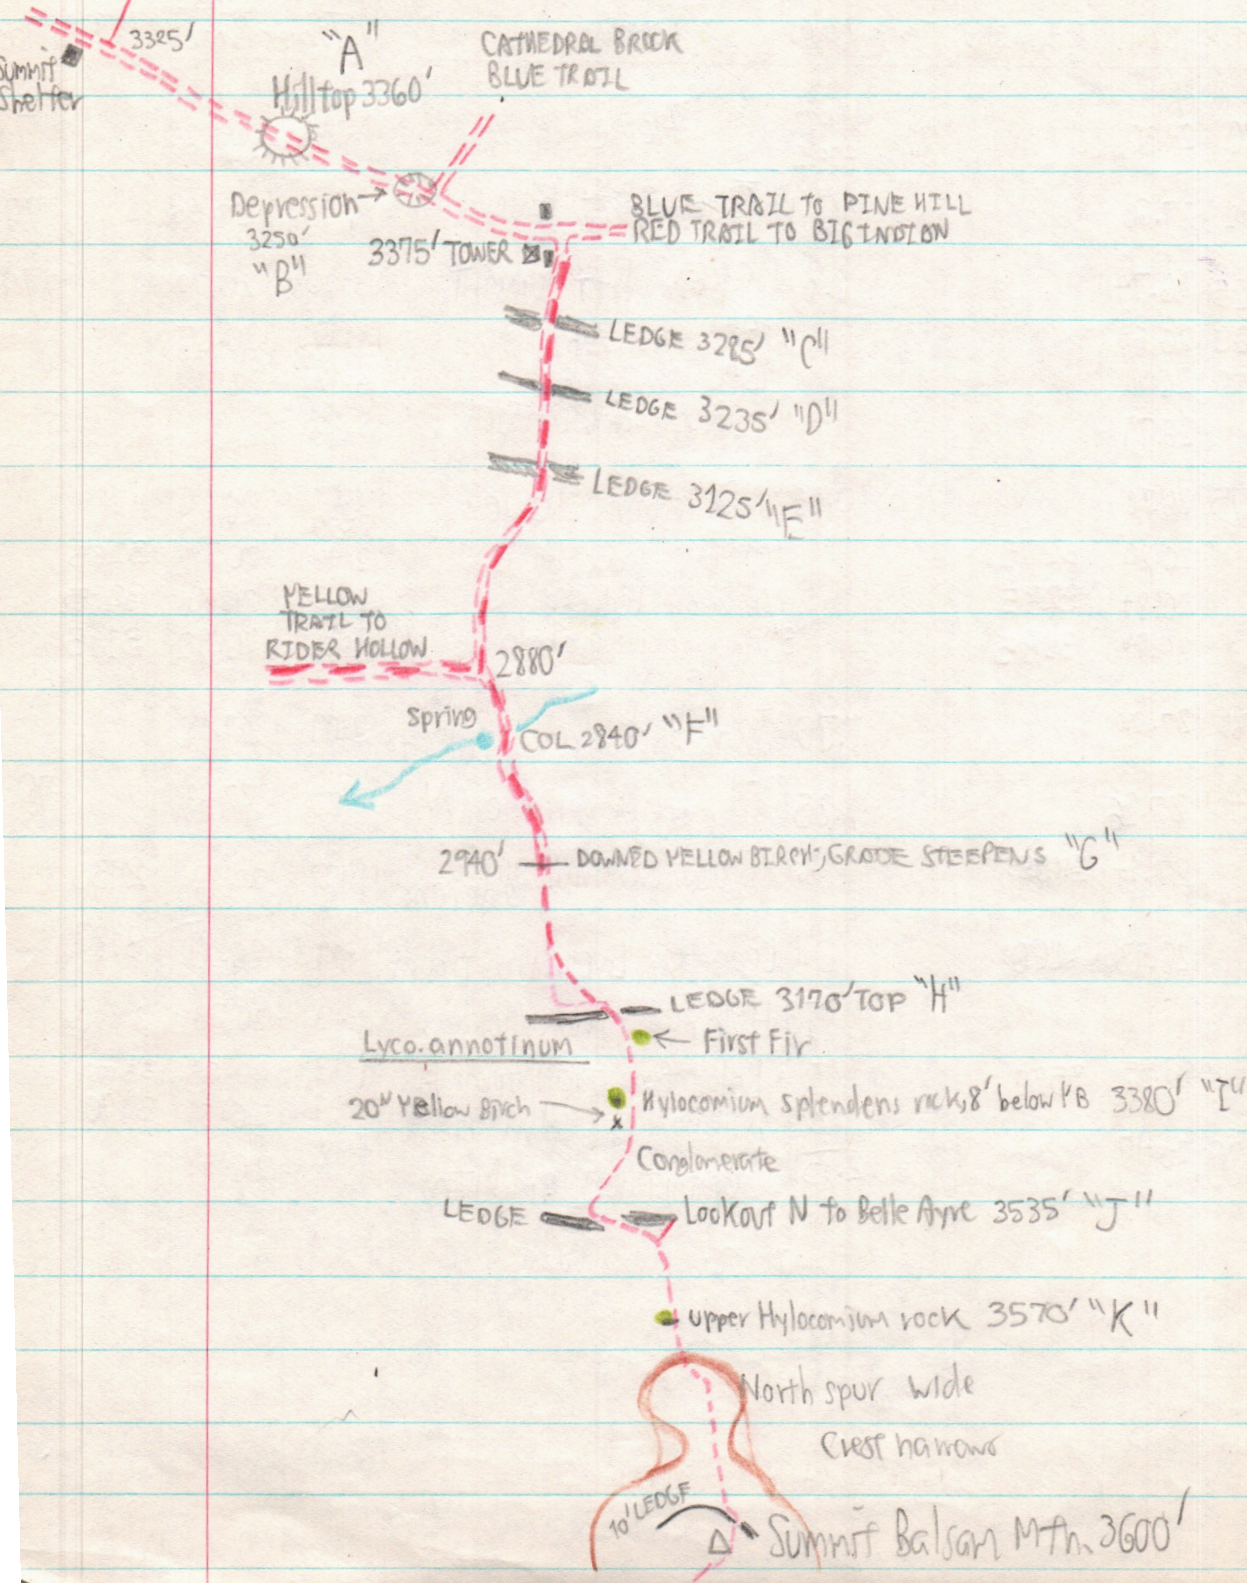 3325'
Summit
Shelter
"A"
Hilltop 3360'
CATHEDRAL BROOK
BLUE TRAIL
Depression
3250'
"B"
3375' TOWER
BLUE TRAIL to PINE HILL
RED TRAIL TO BIG INDIAN
LEDGE 3285' "C"
LEDGE 3235' "D"
LEDGE 3125' "E"
YELLOW
TRAIL TO
RIDER HOLLOW
2880'
Spring
COL 2840' "F"
2940'
DOWNED YELLOW BIRCH; GRADE STEEPENS "G"
LEDGE 3170' TOP "H"
First Fir
Lyco. annotinum
20" Yellow Birch
Hylocomium splendens rock, 8' below YB 3380' "I"
Conglomerate
LEDGE
Lookout N to Belle Ayre 3535' "J"
upper Hylocomium rock 3570' "K"
North spur wide
Crest narrows
10' LEDGE
Summit Balsam Mtn. 3600'